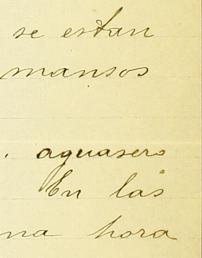 se estan
mansos
. aguasero
En las
na hora